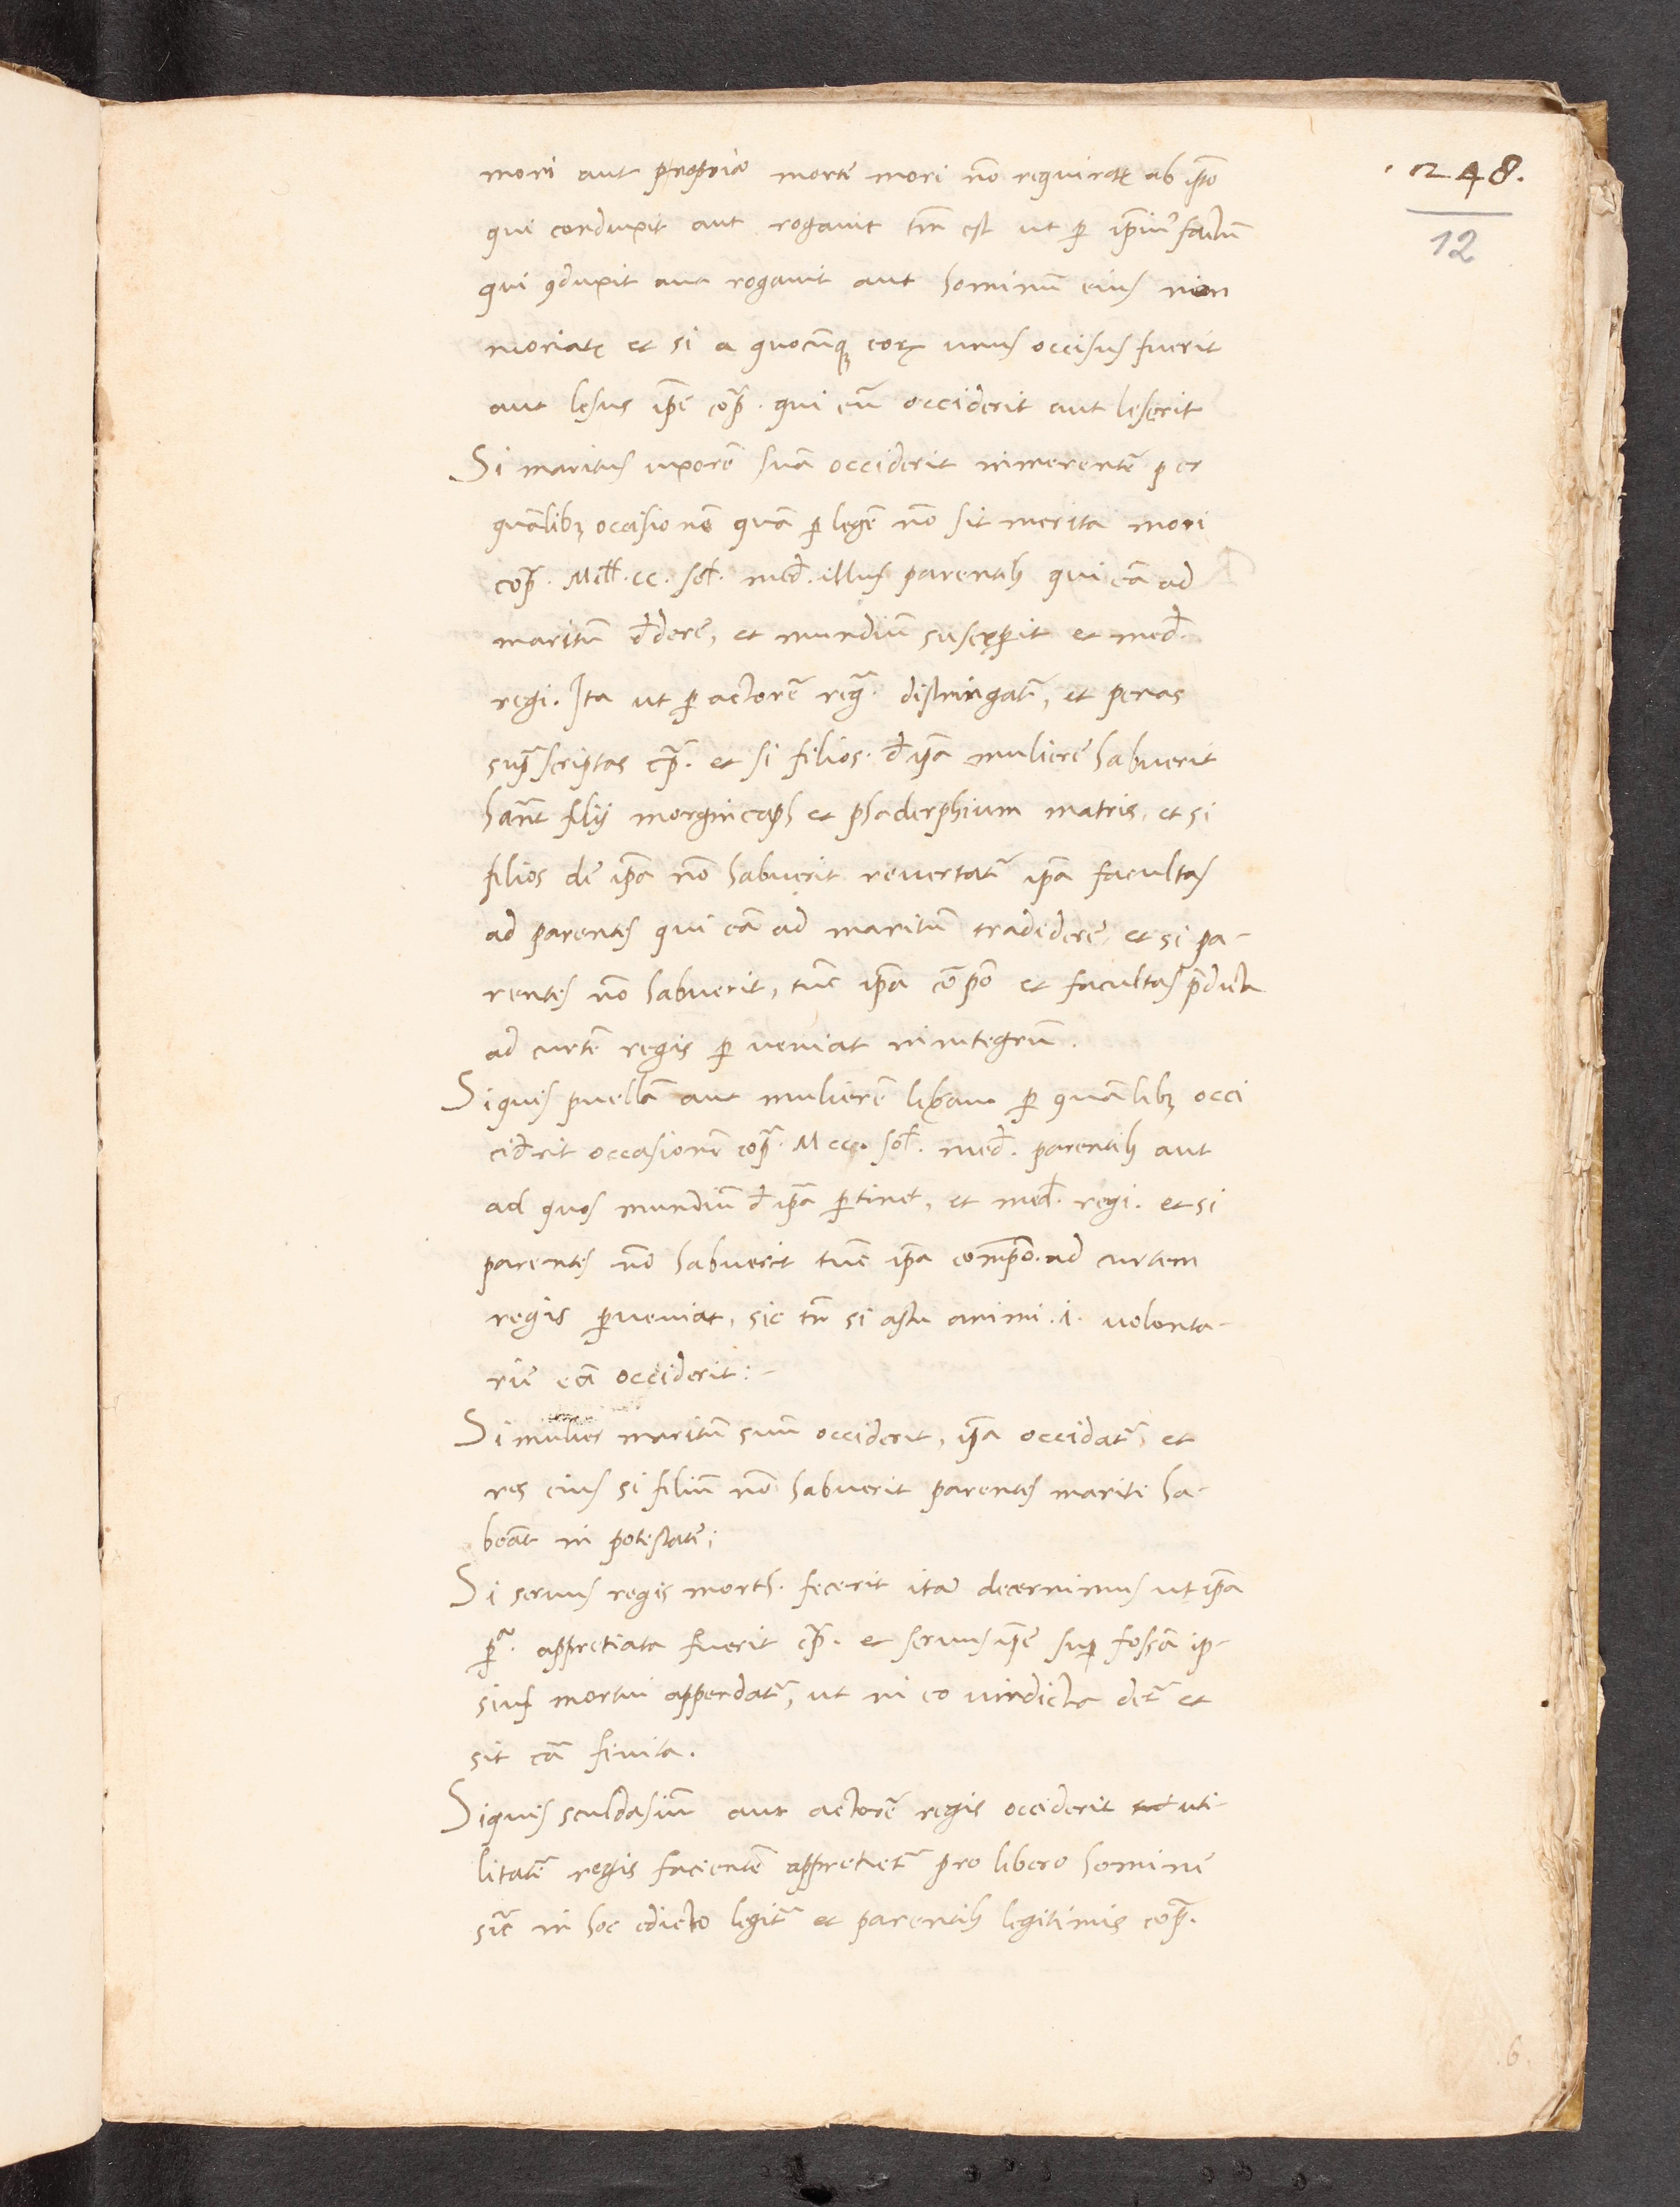 mori aut propria morte mori nō requiratꝛ ab ip̄o
.248.
12
qui conduxit aut rogauit tm̄ est ut ꝑ ip̄iuꝰ factū
qui ꝯduxit aut rogauit aut hominū eius non
moriatꝛ et si a quocūqꝫ eoꝝ unus occisus fuerit
aut lesus ip̄e cōp̄. qui eū occiderit aut leserit
Si maritus uxorē suā occiderit inmerentē per
quālibꝫ occasionē quā ꝑ legē nō sit merita mori
cōp̄. Mill. cc. sol̄. med̄. illius parentib qui eā ad
maritū d̄derē, et mundiū suscep̄it et med̄.
regi. Ita ut ꝑ actorē reḡ. distringat̄, et penas
sup̄rascriptas cp̄. et si filios. d̄ ip̄a muliere habuerit
hānt filij morgincaph et phaderphium matris, et si
filios de ip̄a nō habuerit reuertat̄ ip̄a facultas
ad parentes qui eā ad maritū tradiderē, et si pa-
rentes nō habuerit, tūc ip̄a cōpō et facultas p̄dicta
ad curtē regis ꝑ ueniat in integrū.
Siquis puellā aut mulierē libam ꝑ quālibꝫ occi
cid̄rit occasionē cōp̄. M cc. sol̄. med̄. parentib aut
ad quos mundiū d̄ ip̄a ꝑtinet, et med̄. regi. et si
parentes nō habuerit tūc ip̄a compō. ad curtem
regis ꝑueniat, sic tn̄ si astu animi .i. uolonta-
riē eā occiderit:-
Si mulier maritū suū occiderit, ip̄a occidat̄, et
res eius si filiū nō habuerit parentes mariti ha-
beāt in potestatē;
Si seruus regis morth. fecerit ita decernimus ut ip̄a
ꝑᵃ. appretiata fuerit cp̄. et seruus ip̄e suꝑ fossā ip-
sius mortui appendat̄, ut in eo uindicta det̄ et
sit cā finita.
Siquis sculdasiū aut actorē regis occiderit uti-
litatē regis facientē appretiet̄ pro libero homine
sic̄ in hoc edicto legit̄ et parentib legitimis cōp̄.
.6.